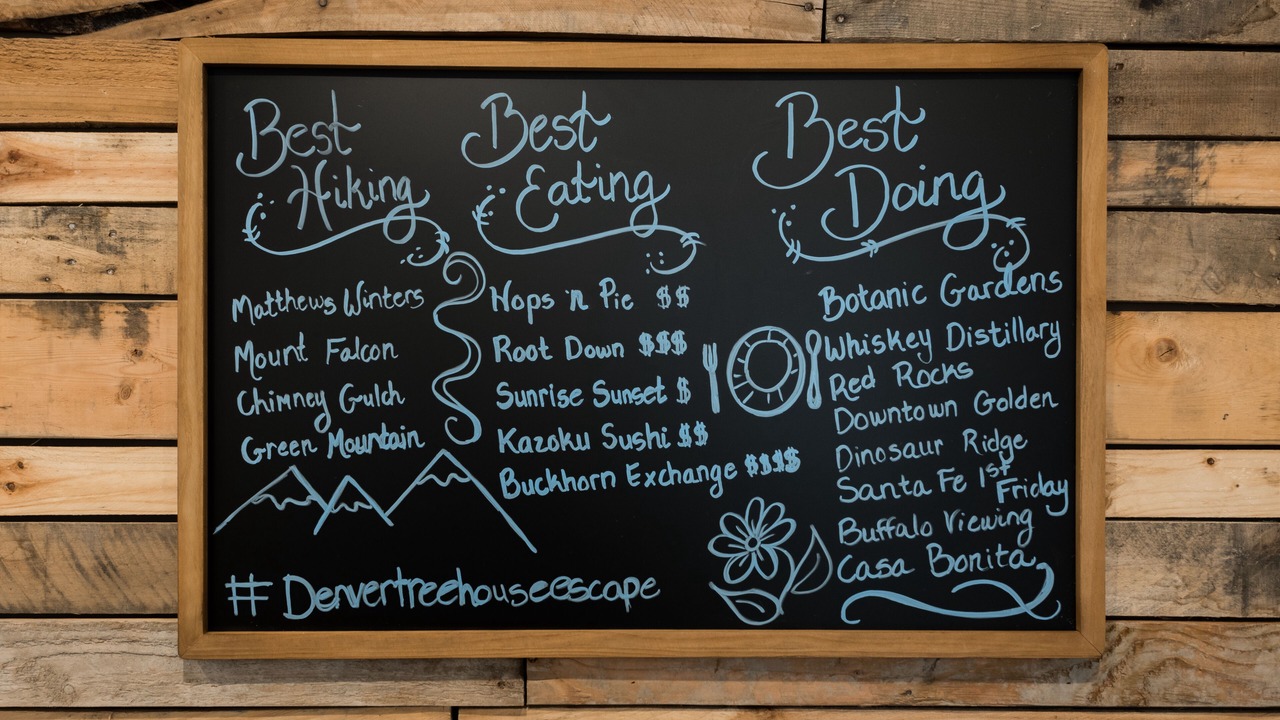 Best
Hiking
Matthews Winters
Mount Falcon
Chimney Gulch
Green Mountain
Best
Eating
Hops 'n Pie $$
Root Down $$$
Sunrise Sunset $
Kazoku Sushi $$
Buckhorn Exchange $$$$
Best
Doing
Botanic Gardens
Whiskey Distillary
Red Rocks
Downtown Golden
Dinosaur Ridge
Santa Fe 1st Friday
Buffalo Viewing
Casa Bonita
# Denvertreehouseescape